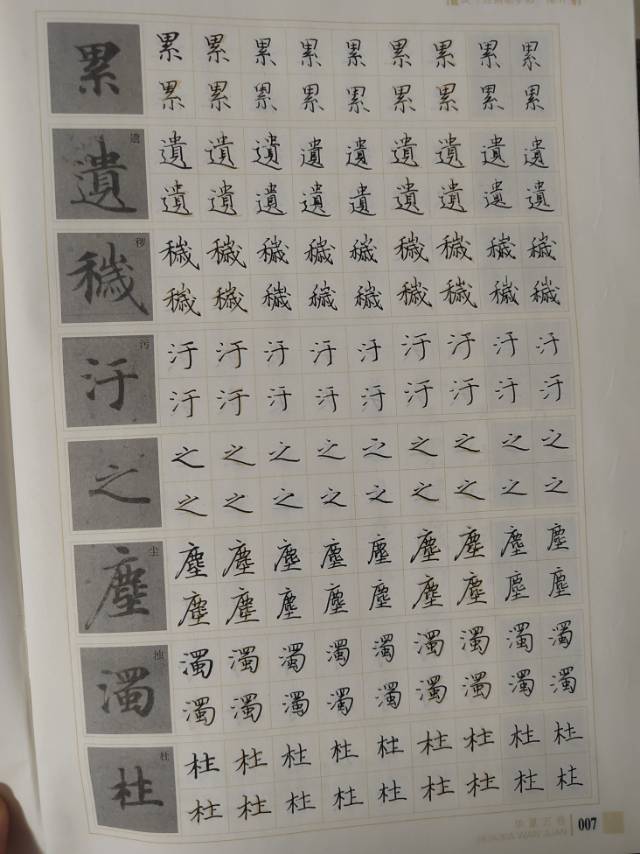 累 累 累 累 累 累 累 累 累 累
累 累 累 累 累 累 累 累 累
遗
遺 遺 遺 遺 遺 遺 遺 遺 遺 遺
遺 遺 遺 遺 遺 遺 遺 遺 遺
秽
穢 穢 穢 穢 穢 穢 穢 穢 穢 穢
穢 穢 穢 穢 穢 穢 穢 穢 穢
污
汙 汙 汙 汙 汙 汙 汙 汙 汙 汙
汙 汙 汙 汙 汙 汙 汙 汙 汙
之 之 之 之 之 之 之 之 之 之
之 之 之 之 之 之 之 之 之
尘
塵 塵 塵 塵 塵 塵 塵 塵 塵 塵
塵 塵 塵 塵 塵 塵 塵 塵 塵
浊
濁 濁 濁 濁 濁 濁 濁 濁 濁 濁
濁 濁 濁 濁 濁 濁 濁 濁 濁
柱
柱 柱 柱 柱 柱 柱 柱 柱 柱 柱
柱 柱 柱 柱 柱 柱 柱 柱 柱
华夏万卷 007
HUAXIA WAN JUAN